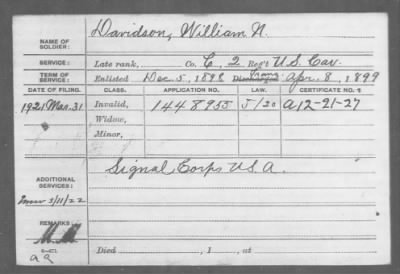 NAME OF SOLDIER: Davidson, William H.
SERVICE: Late rank, Co. C, 2 Reg't U.S. Cav.
TERM OF SERVICE: Enlisted Dec. 5, 1898 Trans. Apr. 8, 1899
DATE OF FILING. CLASS. APPLICATION NO. LAW. CERTIFICATE NO.
1921 Mar. 31 Invalid, 1448955 J/20 A12-21-27
Widow,
Minor,
ADDITIONAL SERVICES: Signal Corps U.S.A.
3/11/22
REMARKS:
Died , 1 , at